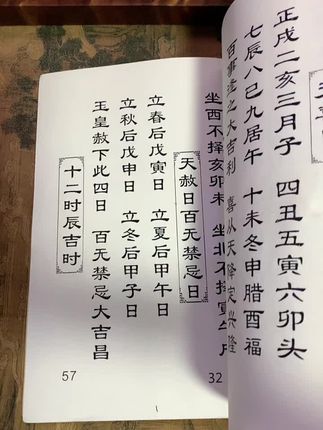 正戌二亥三月子 四丑五寅六卯头
七辰八巳九居午 十未冬申腊酉福
百事逢之大吉利 喜从天降定兴隆
坐西不择亥卯未 坐北不择寅午
天赦日百无禁忌日
立春后戊寅日 立夏后甲午日
立秋后戊申日 立冬后甲子日
玉皇赦下此四日 百无禁忌大吉昌
十二时辰吉时
57
32